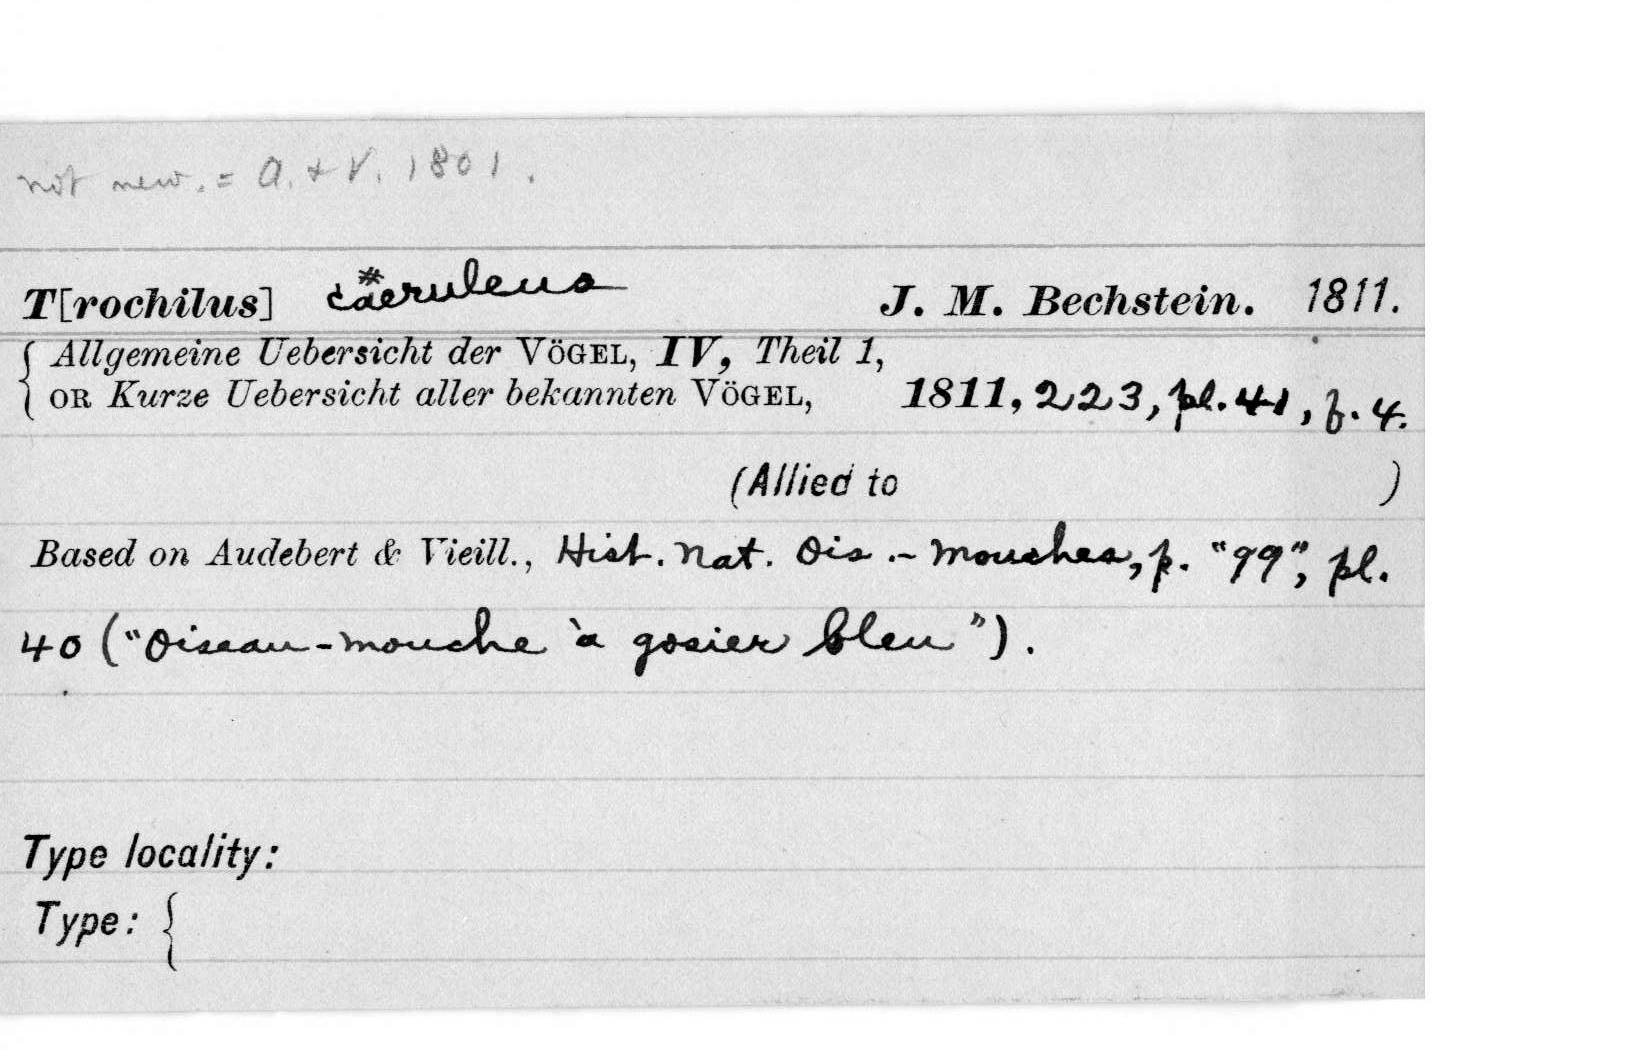 not new. = A. + V. 1801.
T[rochilus] caeruleus J. M. Bechstein. 1811.
{ Allgemeine Uebersicht der VÖGEL, IV, Theil 1,
OR Kurze Uebersicht aller bekannten VÖGEL, 1811, 223, pl. 41, f. 4.
(Allied to )
Based on Audebert & Vieill., Hist. Nat. Ois.-Mouches, p. "99", pl.
40 ("Oiseau-mouche à gosier bleu").
Type locality:
Type: {